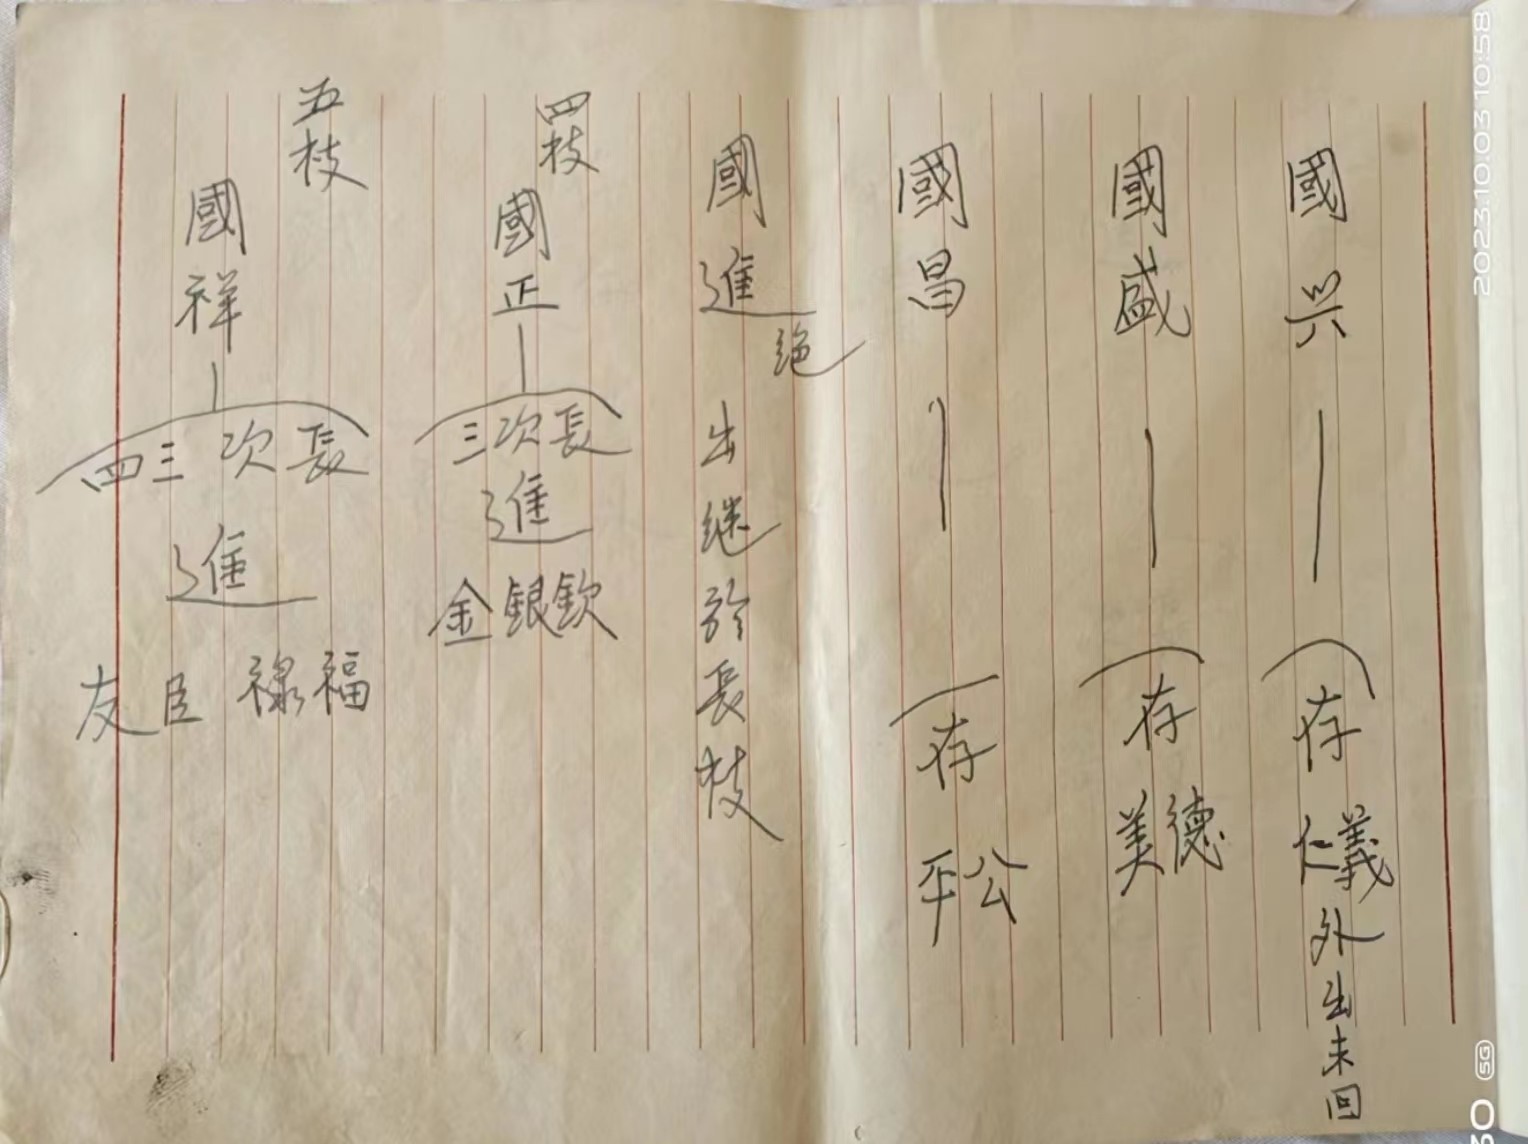 國兴
存
義
仁
外出未回
國盛
存
德
美
國昌
存
公
平
國進
绝
出继於長枝
四枝
國正
長
次
三
進
欽
銀
金
五枝
國祥
長
次
三
四
進
福
祿
臣
友
2023.10.03 10:58
5G